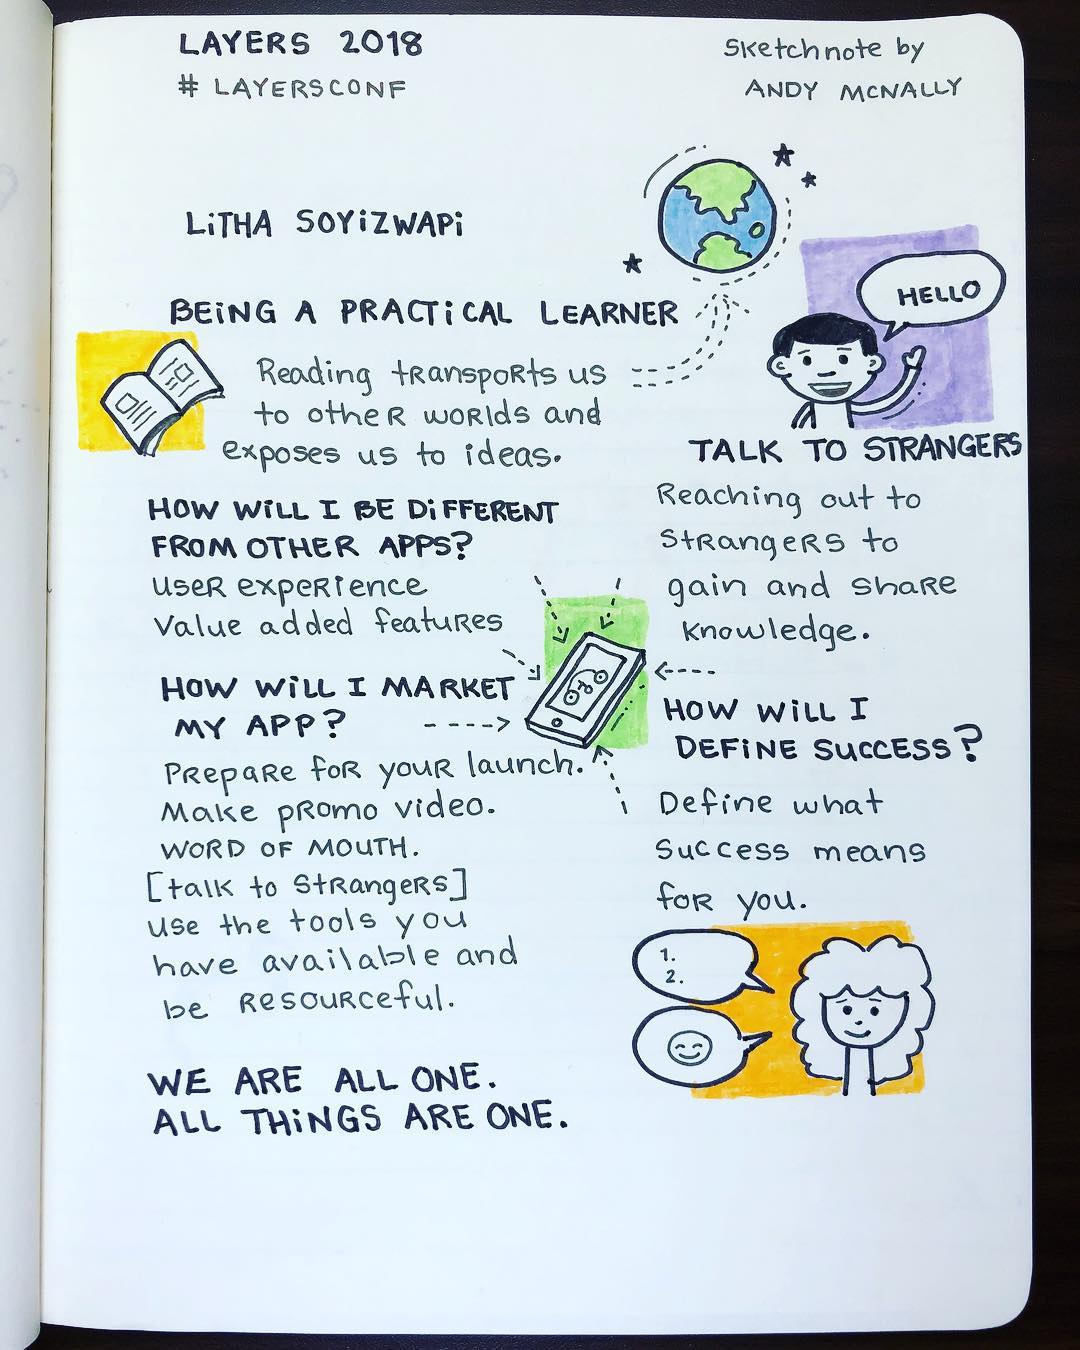 LAYERS 2018
# LAYERSCONF
Sketchnote by
ANDY MCNALLY
LiTHA SOYiZWAPi
BEiNG A PRACTiCAL LEARNER
Reading transports us
to other worlds and
exposes us to ideas.
HELLO
TALK TO STRANGERS
Reaching out to
strangers to
gain and share
knowledge.
HOW WiLL I BE DiFFERENT
FROM OTHER APPS?
user experience
Value added features
HOW WiLL I MARKET
MY APP?
Prepare for your launch.
Make promo video.
WORD OF MOUTH.
[talk to strangers]
use the tools you
have available and
be resourceful.
HOW WiLL I
DEFiNE SUCCESS?
Define what
success means
for you.
1.
2.
WE ARE ALL ONE.
ALL THiNGS ARE ONE.